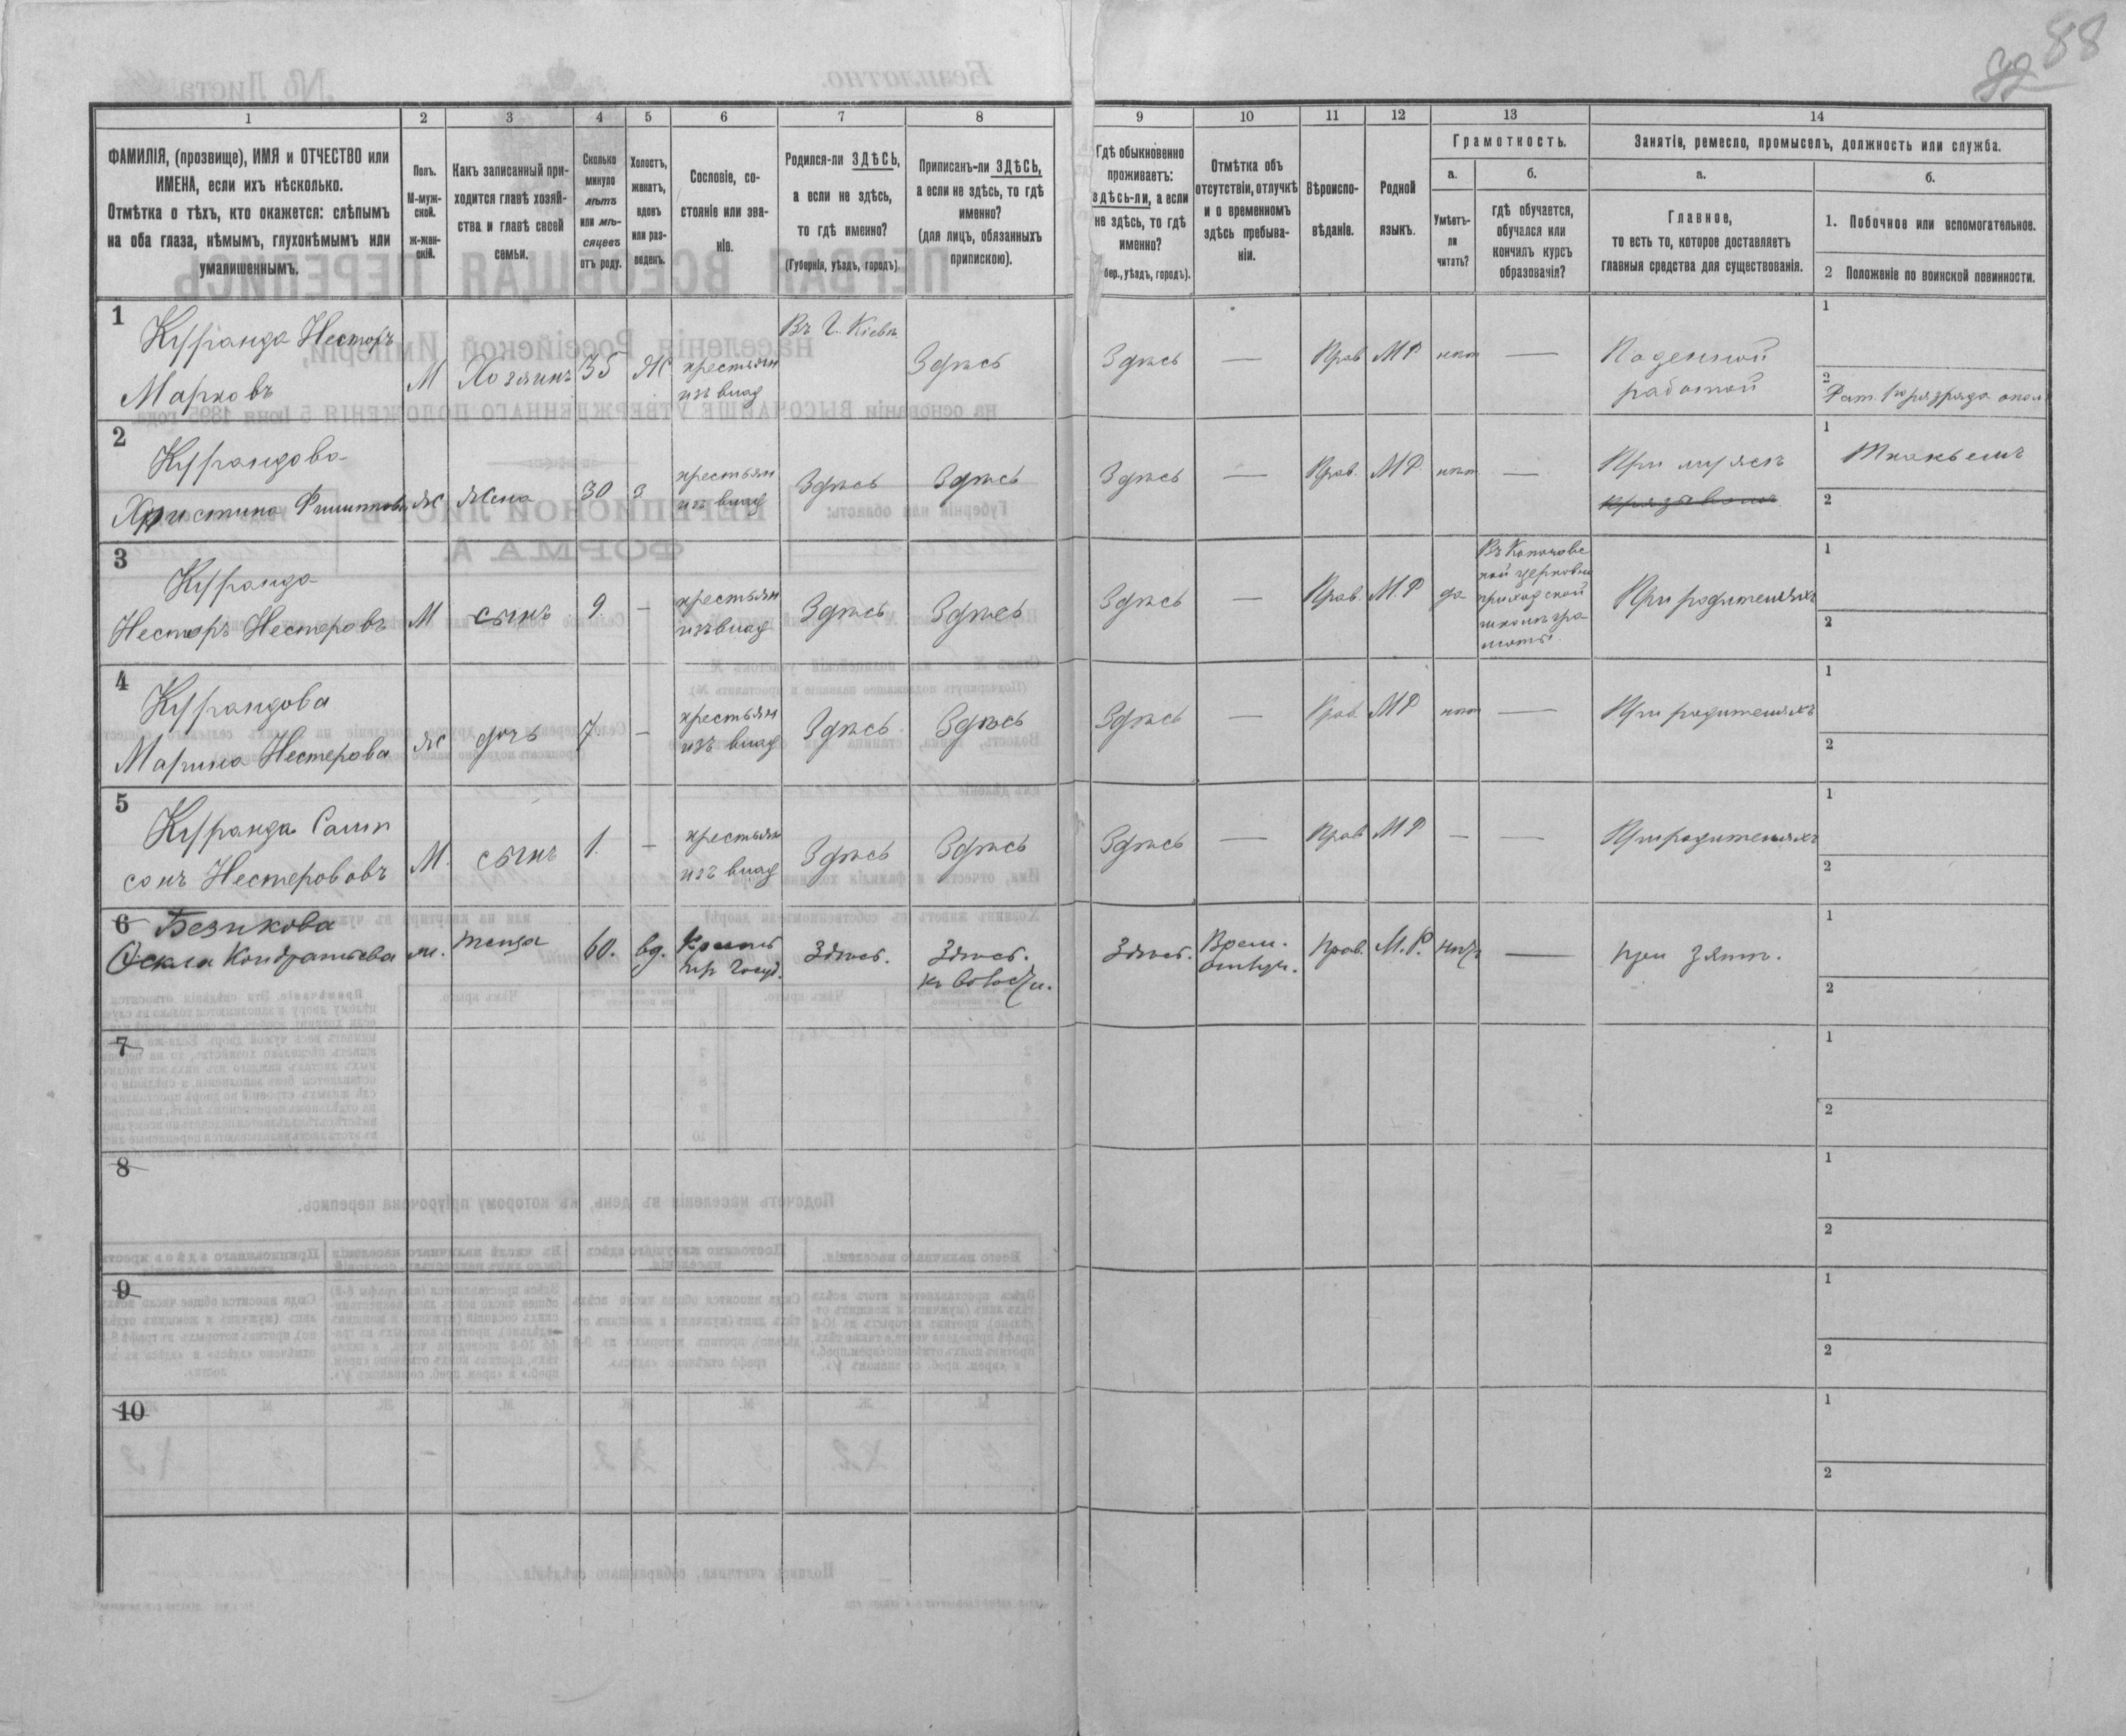 88
92
1 2 3 4 5 6 7 8 9 10 11 12 13 14
ФАМИЛІЯ, (прозвище), ИМЯ и ОТЧЕСТВО или
ИМЕНА, если ихъ нѣсколько.
Отмѣтка о тѣхъ, кто окажется: слѣпымъ
на оба глаза, нѣмымъ, глухонѣмымъ или
умалишеннымъ.
Полъ.
М-муж-
ской.
ж-жен-
скій.
Какъ записанный при-
ходится главѣ хозяй-
ства и главѣ своей
семьи.
Сколько
минуло
лѣтъ
или мѣ-
сяцевъ
отъ роду.
Холостъ,
женатъ,
вдовъ
или раз-
веденъ.
Сословіе, со-
стояніе или зва-
ніе.
Родился-ли ЗДѢСЬ,
а если не здѣсь,
то гдѣ именно?
(Губернія, уѣздъ, городъ)
Приписанъ-ли ЗДѢСЬ,
а если не здѣсь, то гдѣ
именно?
(для лицъ, обязанныхъ
припискою).
Гдѣ обыкновенно
проживаетъ:
ЗДѢСЬ-ЛИ, а если
не здѣсь, то гдѣ
именно?
бер., уѣздъ, городъ).
Отмѣтка объ
отсутствіи, отлучкѣ
и о временномъ
здѣсь пребыва-
ніи.
Вѣроиспо-
вѣданіе.
Родной
языкъ.
Грамотность.
а.
Умѣетъ-
ли
читать?
б.
гдѣ обучается,
обучался или
кончилъ курсъ
образованія?
Занятіе, ремесло, промыселъ, должность или служба.
а.
Главное,
то есть то, которое доставляетъ
главныя средства для существованія.
б.
1. Побочное или вспомогательное.
2 Положеніе по воинской повинности.
1
Курганда Несторъ
Марковъ
М
Хозяинъ
35
Ж
крестьян
изъ влад
Въ Г. Кіевѣ
Здѣсь
Здѣсь
—
Прав
МР
нѣт
—
Поденной
работой
1
2
Рат. 1го разряда опол
2
Кургандова
Христина Филиппова
Ж
Жена
30
з
крестьян
изъ влад
Здѣсь
Здѣсь
Здѣсь
—
Прав.
МР
нѣт
—
При мужѣ
1
2
3
Курганда
Несторъ Нестеровъ
М
сынъ
9
—
крестьян
изъ влад
Здѣсь
Здѣсь
Здѣсь
—
Прав.
М.Р
да
церковно
приходской
школѣ гра-
моты
При родителяхъ
1
2
4
Кургандова
Марина Нестерова
Ж
дочь
7
—
крестьян
изъ влад
Здѣсь
Здѣсь
Здѣсь
—
Прав
МР
нѣт
—
При родителяхъ
1
2
5
Курганда Самп
сонъ Нестерововъ
М.
сынъ
1.
—
крестьян
изъ влад
Здѣсь
Здѣсь
Здѣсь
—
Прав
МР
—
—
При родителяхъ
1
2
6
Безикова
Кондратьева
ж.
теща
60.
вд.
Здѣсь.
Здѣсь.
Здѣсь.
Врем.
Прав.
М.Р.
нѣтъ
—
при зятѣ.
1
2
7
1
2
8
1
2
9
1
2
10
1
2